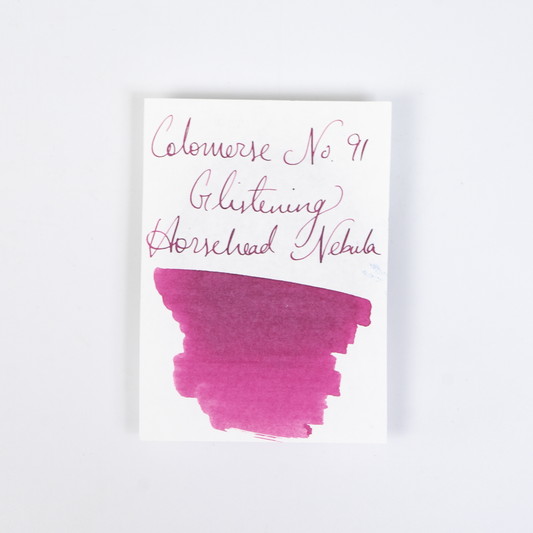 Colomerse No. 91
Glistening
Horsehead Nebula